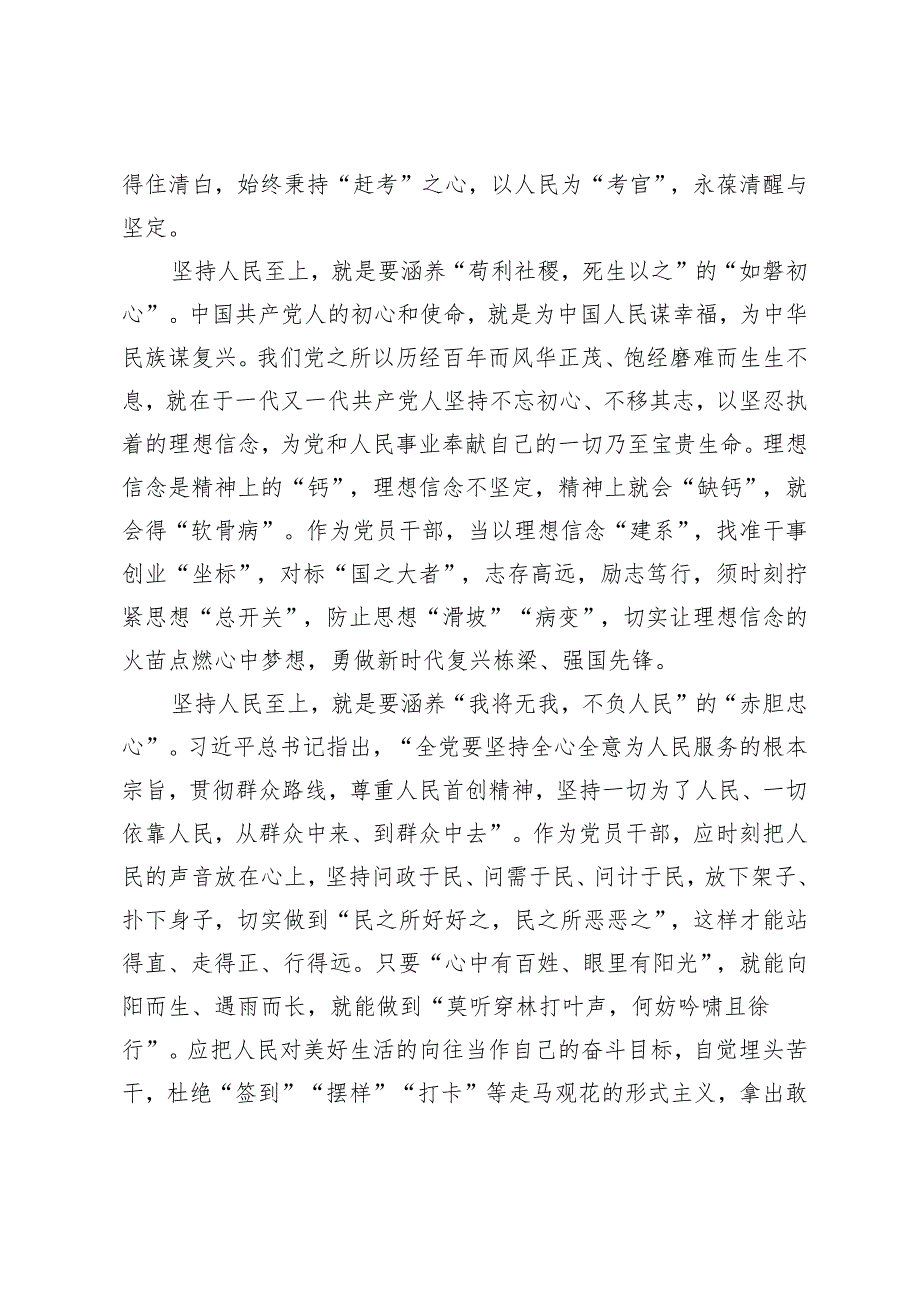 得住清白，始终秉持“赶考”之心，以人民为“考官”，永葆清醒与
坚定。
坚持人民至上，就是要涵养“苟利社稷，死生以之”的“如磐初
心”。中国共产党人的初心和使命，就是为中国人民谋幸福，为中华
民族谋复兴。我们党之所以历经百年而风华正茂、饱经磨难而生生不
息，就在于一代又一代共产党人坚持不忘初心、不移其志，以坚忍执
着的理想信念，为党和人民事业奉献自己的一切乃至宝贵生命。理想
信念是精神上的“钙”，理想信念不坚定，精神上就会“缺钙”，就
会得“软骨病”。作为党员干部，当以理想信念“建系”，找准干事
创业“坐标”，对标“国之大者”，志存高远，励志笃行，须时刻拧
紧思想“总开关”，防止思想“滑坡”“病变”，切实让理想信念的
火苗点燃心中梦想，勇做新时代复兴栋梁、强国先锋。
坚持人民至上，就是要涵养“我将无我，不负人民”的“赤胆忠
心”。习近平总书记指出，“全党要坚持全心全意为人民服务的根本
宗旨，贯彻群众路线，尊重人民首创精神，坚持一切为了人民、一切
依靠人民，从群众中来、到群众中去”。作为党员干部，应时刻把人
民的声音放在心上，坚持问政于民、问需于民、问计于民，放下架子、
扑下身子，切实做到“民之所好好之，民之所恶恶之”，这样才能站
得直、走得正、行得远。只要“心中有百姓、眼里有阳光”，就能向
阳而生、遇雨而长，就能做到“莫听穿林打叶声，何妨吟啸且徐
行”。应把人民对美好生活的向往当作自己的奋斗目标，自觉埋头苦
干，杜绝“签到”“摆样”“打卡”等走马观花的形式主义，拿出敢